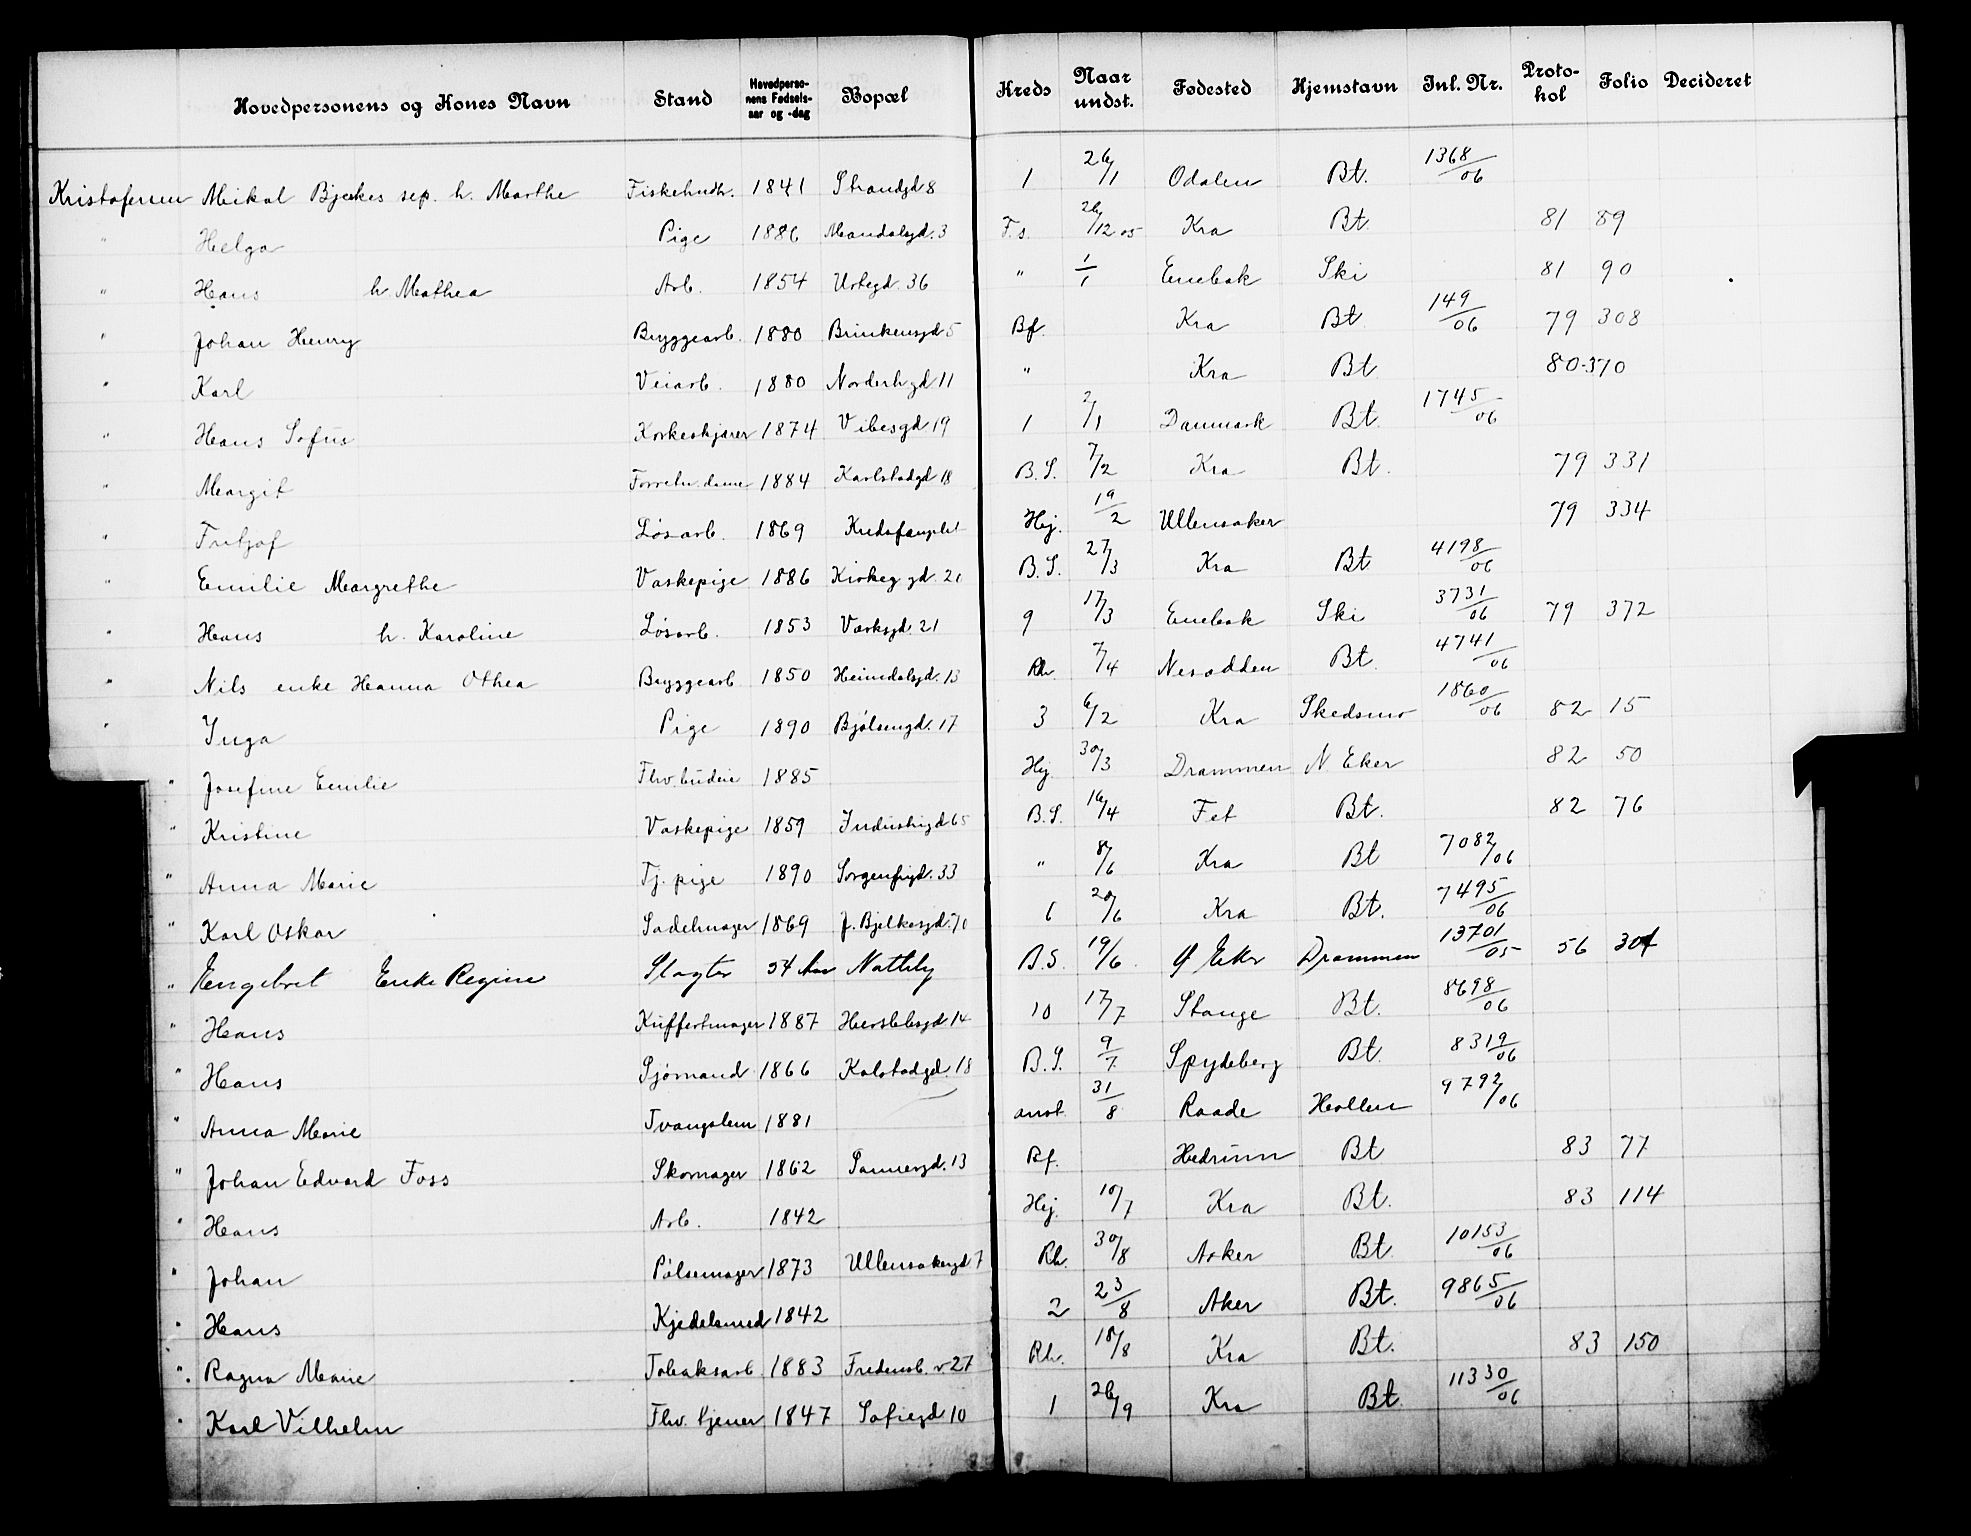 Hovedpersonens og Kones Navn Stand Hovedpersonens Fødselsaar og -dag Bopæl Kreds Naar undst. Fødested Hjemstavn Inl. Nr. Protokol Folio Decideret
Kristofersen Mikal Bjerkes sep. h. Marthe Fiskehndh. 1841 Strandgd 8 1 26/1 Odalen Bt. 1368/06
" Helga Pige 1886 Mandalsgd. 3 F.s. 26/12 05 Kra Bt. 81 89
" Hans h. Mathea Arb. 1854 Urtegd. 36 " 1/1 Enebak Ski 81 90
" Johan Henry Bryggearb. 1880 Brinkensgd 5 Bf. Kra Bt. 149/06 79 308
" Karl Veiarb. 1880 Norderhgd 11 " Kra Bt. 80-370
" Hans Sofus Korkeskjærer 1874 Vibesgd 19 1 2/1 Danmark Bt. 1745/06
" Margit Forretn. dame 1884 Karlstadgd 18 B.S. 7/2 Kra Bt. 79 331
" Fritjof Løsarb. 1869 Kredsfængslet Hj. 19/2 Ullensaker 79 334
" Emilie Margrethe Vaskepige 1886 Kirkeg gd. 21 B.S. 27/3 Kra Bt 4198/06
" Hans h. Karoline Løsarb. 1853 Værksgd. 21 9 17/3 Enebak Ski 3731/06 79 372
" Nils enke Hanna Othea Bryggearb 1850 Heimdalsgd. 13 Rh. 7/4 Nesodden Bt. 4741/06
" Inga Pige 1890 Bjølsengd. 17 3 6/2 Kra Skedsmo 1860/06 82 15
" Josefine Emilie Fhv. budeie 1885 Hj. 30/3 Drammen N Eker 82 50
" Kristine Vaskepige 1859 Industrigd 65 B.S. 16/4 Fet Bt. 82 76
" Anna Marie Tj. pige 1890 Sorgenfrigd. 33 " 8/6 Kra Bt 7082/06
" Karl Oskar Sadelmager 1869 J. Bjelkesgd. 70 6 20/6 Kra Bt. 7495/06
" Engebret Enke Regine Slagter 54 Aar Nathly B.S. 19/6 Ø Eker Drammen 13701/05 56 304
" Hans Kuffertmager 1887 Herslebsgd 14 10 17/7 Stange Bt. 8698/06
" Hans Sjømand 1866 Kalstadgd. 18 B.S. 9/7 Spydeberg Bt. 8319/06
" Anna Marie Tvangslem 1881 anst. 31/8 Raade Hollen 9792/06
" Johan Edvard Foss Skomager 1862 Sannergd. 13 Bf. Hedrum Bt 83 77
" Hans Arb. 1842 Hj. 10/7 Kra Bt. 83 114
" Johan Pølsemager 1873 Ullensakergd 7 Rh. 30/8 Asker Bt. 10153/06
" Hans Kjedelsmed 1842 2 23/8 Aker Bt. 9865/06
" Ragna Marie Tobaksarb. 1883 Fredensb. v 27 Rh. 18/8 Kra Bt. 83 150
" Karl Vilhelm Fhv. tjener 1847 Sofiegd 10 1 26/9 Kra Bt. 11330/06